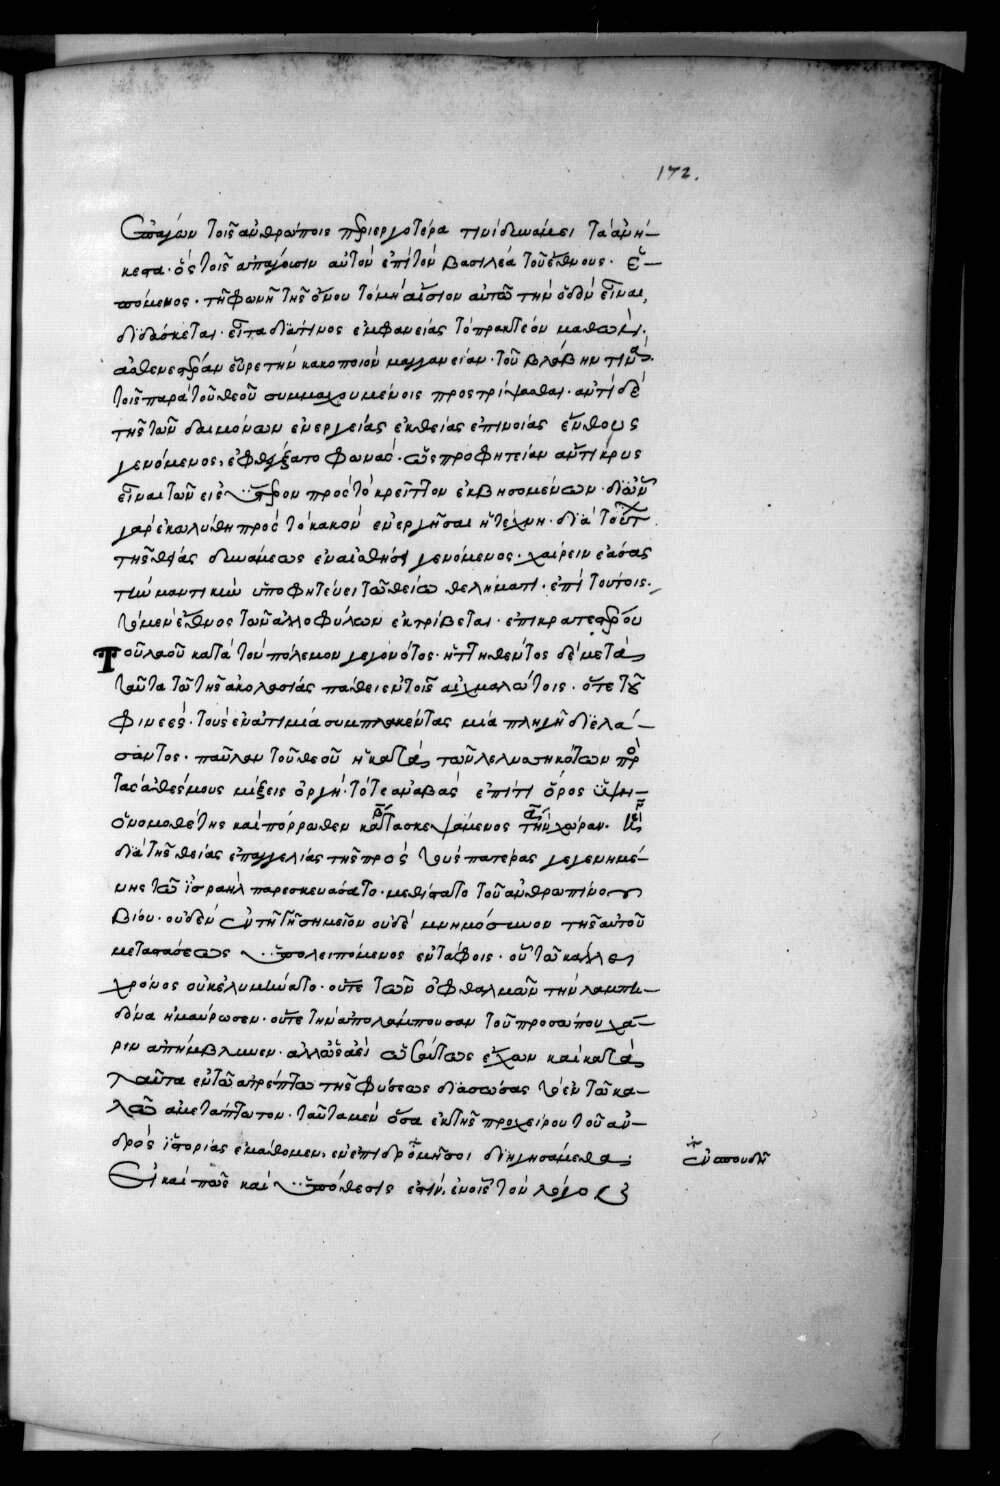 172.
ἐπάγων τοῖς ἀνθρώποις περιεργοτέρα τινὶ δυνάμει τὰ ἀνή-
κεστα· ὃς τοῖς ἀπάγουσιν αὐτὸν ἐπὶ τὸν βασιλέα τοῦ ἔθνους· ἑ-
πόμενος· τῇ φωνῇ τῆς ὄνου τὸ μὴ αἴσιον αὐτῷ τὴν ὁδὸν εἶναι,
διδάσκεται· εἶτα διά τινος ἐμφανείας τὸ πρακτέον μαθὼν·
ἀσθενεστέραν εὗρε τὴν κακοποιὸν μαγγανείαν· τοῦ βλάβην τινὰ
τοῖς παρὰ τοῦ θεοῦ συμμαχουμένοις προστρίψασθαι· ἀντὶ δὲ
τῆς τῶν δαιμόνων ἐνεργείας ἐκ θείας ἐπινοίας ἔνθους
γενόμενος, ἐφθέγξατο φωνὰς· ὡς προφητείαν ἄντικρυς
εἶναι τῶν εἰς ὕστερον πρὸς τὸ κρεῖττον ἐκβησομένων· δι' ὧν
γὰρ ἐκωλύθη πρὸς τὸ κακὸν ἐνεργῆσαι ἡ τέχνη· διὰ τούτων
τῆς θείας δυνάμεως ἐν αἰσθήσει γενόμενος· χαίρειν ἐάσας
τὴν μαντικὴν ὑποφητεύει τῷ θείῳ θελήματι· ἐπὶ τούτοις·
τὸ μὲν ἔθνος τῶν ἀλλοφύλων ἐκτρίβεται· ἐπικρατεστέρου
Τοῦ λαοῦ κατὰ τὸν πόλεμον γεγονότος· ἡττηθέντος δὲ μετὰ
ταῦτα τῷ τῆς ἀκολασίας πάθει ἐν τοῖς αἰχμαλώτοις· ὅτε τοῦ
Φινεὲς· τοὺς ἐν ἀτιμίᾳ συμπλακέντας μιᾷ πληγῇ διελά-
σαντος· παῦλαν τοῦ θεοῦ ἡ κατὰ τῶν λελυσσηκότων πρὸς
τὰς ἀθέσμους μίξεις ὀργή· τότε ἀναβὰς ἐπί τι ὄρος ὑψη-
ὁ νομοθέτης καὶ πόρρωθεν κατασκεψάμενος τὴν χώραν·
διὰ τῆς θείας ἐπαγγελίας τῆς πρὸς τοὺς πατέρας γεγενημέ-
νης τῷ ἰσραὴλ παρεσκευάσατο· μεθίστατο τοῦ ἀνθρωπίνου
βίου· οὐδὲν ἐν τῇ γῇ σημεῖον οὐδὲ μνημόσυνον τῆς αὐτοῦ
μεταστάσεως ὑπολειπόμενος ἐν ταφοῖς· οὗ τῷ κάλλει
χρόνος οὐκ ἐλυμήνατο· οὔτε τῶν ὀφθαλμῶν τὴν λαμπη-
δόνα ἠμαύρωσεν· οὔτε τὴν ἀπολάμπουσαν τοῦ προσώπου χά-
ριν ἀπήμβλυνεν· ἀλλ' ὡς ἀεὶ ὡσαύτως ἔχων καὶ κατὰ
ταῦτα ἐν τῷ ἀτρέπτῳ τῆς φύσεως διασώσας τὸ ἐν τῷ κα-
λῷ ἀμετάπτωτον· ταῦτα μὲν ὅσα ἐκ τῆς προχείρου τοῦ ἀν-
δρὸς ἱστορίας ἐμάθομεν, ἐν ἐπιδρομῇ σοι διηγησάμεθα
Εἰ καί πως καὶ ὑπόθεσις ἐστὶν, ἐν οἷς τὸν λόγον
ἐν σπουδῇ